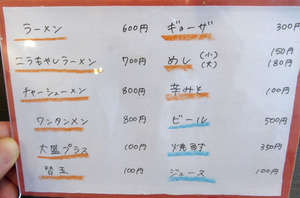 ラーメン 600円
ニラもやしラーメン 700円
チャーシューメン 800円
ワンタンメン 800円
大盛プラス 100円
替玉 100円
ギョーザ 300円
めし (小) 150円
(大) 180円
辛みそ 100円
ビール 500円
焼酎 350円
ジュース 100円